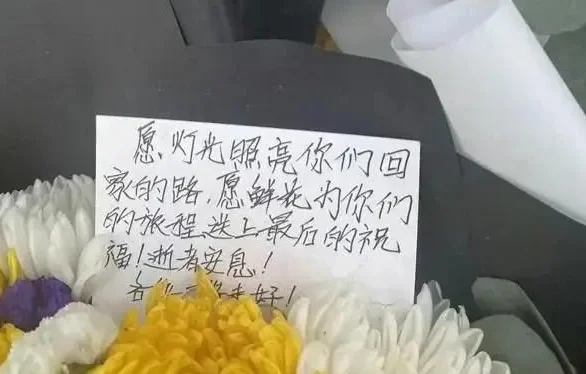 愿灯光照亮你们回
家的路,愿鲜花为你们
的旅程送上最后的祝
福!逝者安息!
走好!